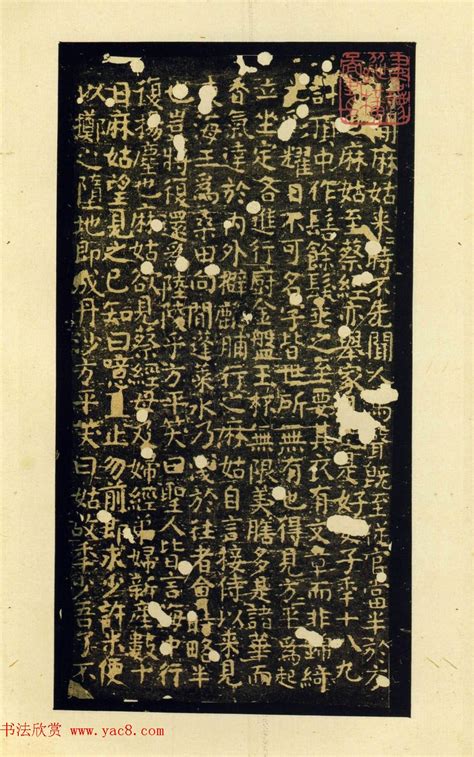 麻姑来時不先聞人馬聲既至從官當半於方
麻姑至蔡經亦舉家是好女子年十八九
許頂中作髻餘髮垂之至要其衣有文章而非錦綺
耀日不可名字皆世所無有也得見方平為起
立坐定各進行廚金盤玉杯無限美膳多是諸華而
香氣達於內外擗麟脯行之麻姑自言接待以来見
東海三為桑田向間蓬萊水乃淺於往者會時略半
也豈將復還為陸陵乎方平笑曰聖人皆言海中行
復揚塵也麻姑欲見蔡經母及婦經弟婦新產數十
日麻姑望見之已知曰噫且止勿前即求少許米便
以擲之墮地即成丹沙方平笑曰姑故年少吾了不
书法欣赏 www.yac8.com